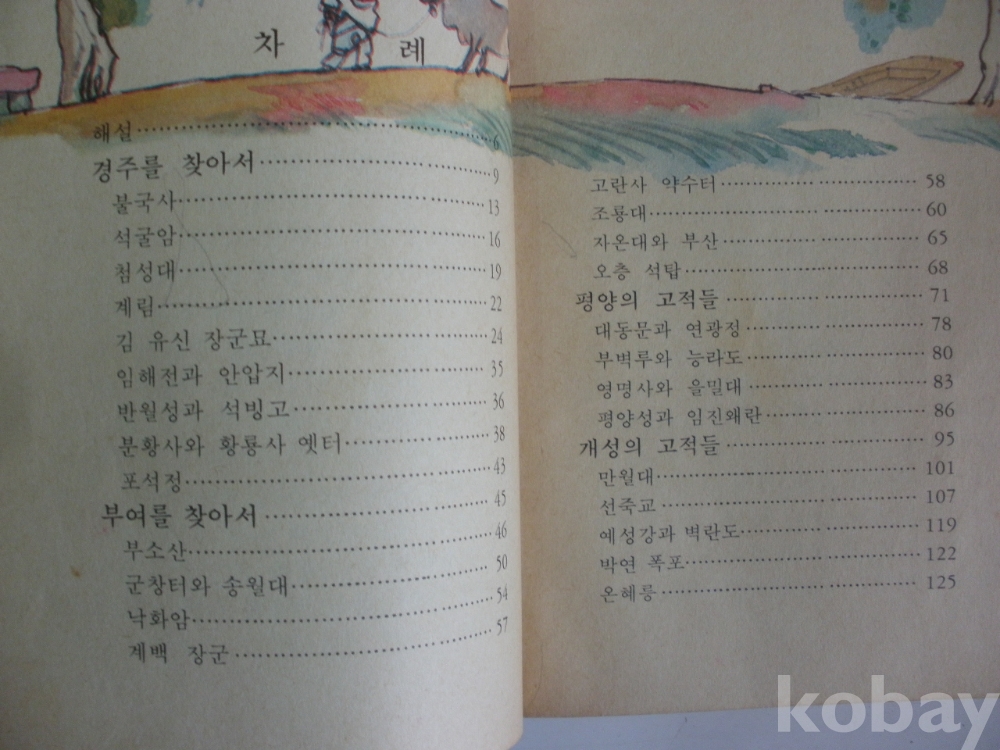 차 례
해설 6
경주를 찾아서 9
불국사 13
석굴암 16
첨성대 19
계림 22
김 유신 장군묘 24
임해전과 안압지 35
반월성과 석빙고 36
분황사와 황룡사 옛터 38
포석정 43
부여를 찾아서 45
부소산 46
군창터와 송월대 50
낙화암 54
계백 장군 57
고란사 약수터 58
조룡대 60
자온대와 부산 65
오층 석탑 68
평양의 고적들 71
대동문과 연광정 78
부벽루와 능라도 80
영명사와 을밀대 83
평양성과 임진왜란 86
개성의 고적들 95
만월대 101
선죽교 107
예성강과 벽란도 119
박연 폭포 122
온혜릉 125
kobay